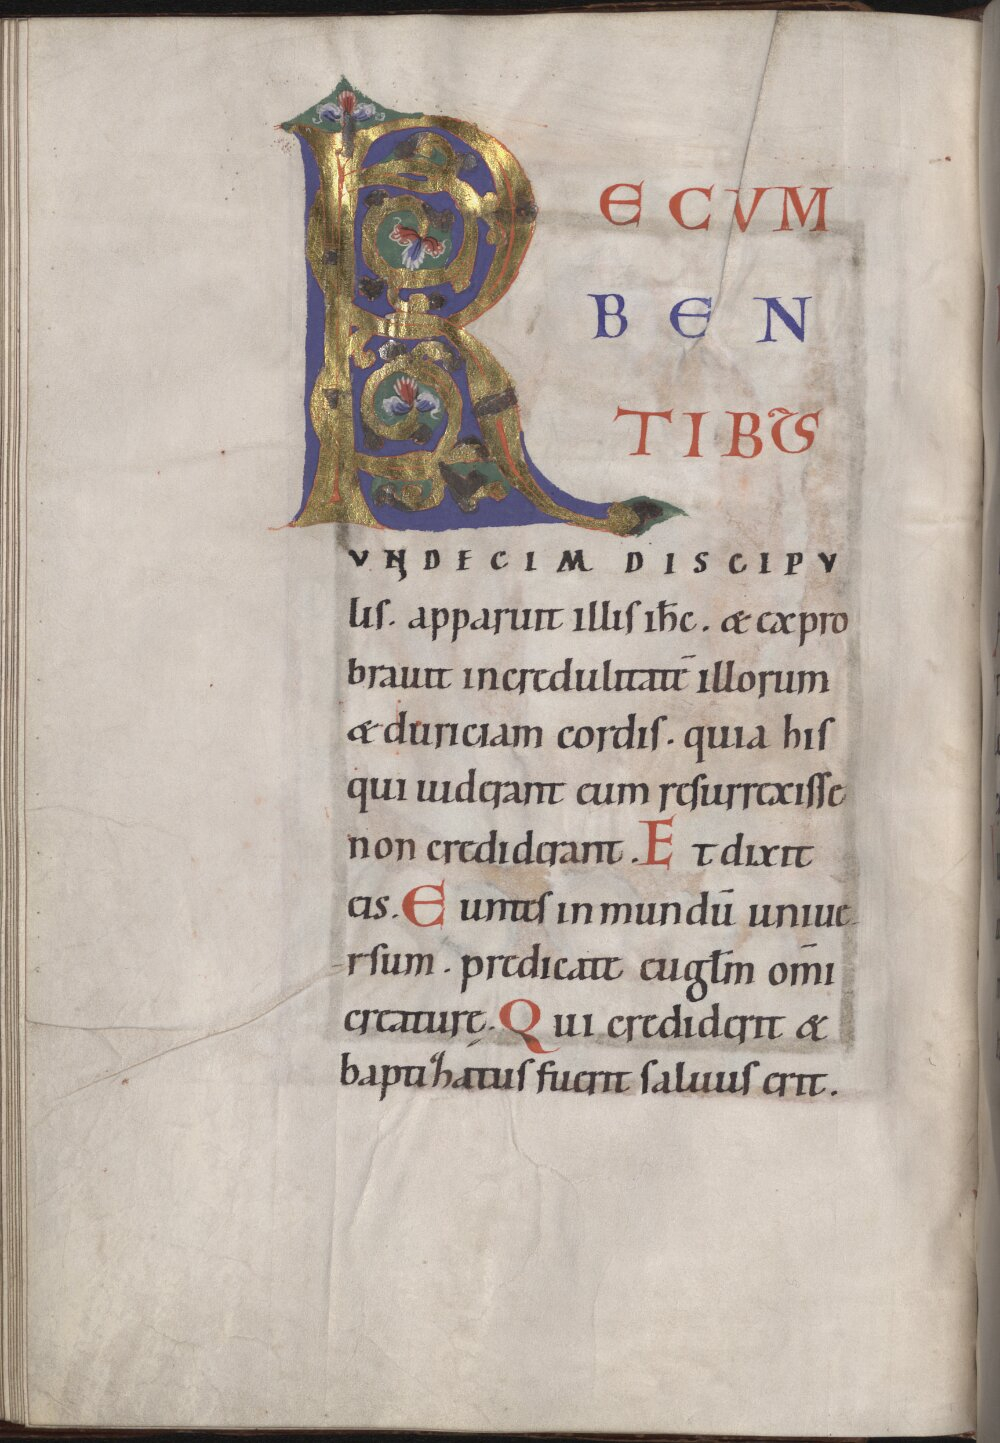 RECVM
BEN
TIBUS
VNDECIM DISCIPV
lis. apparuit illis ihc̄. & expro
brauit incredulitatē illorum
& duriciam cordis. quia his
qui uiderant eum resurrexisse
non crediderant. Et dixit
eis. Euntes in mundū uniue
rsum. predicate eugl̄m om̄i
creaturę. Qui crediderit &
baptizatus fuerit saluus erit.